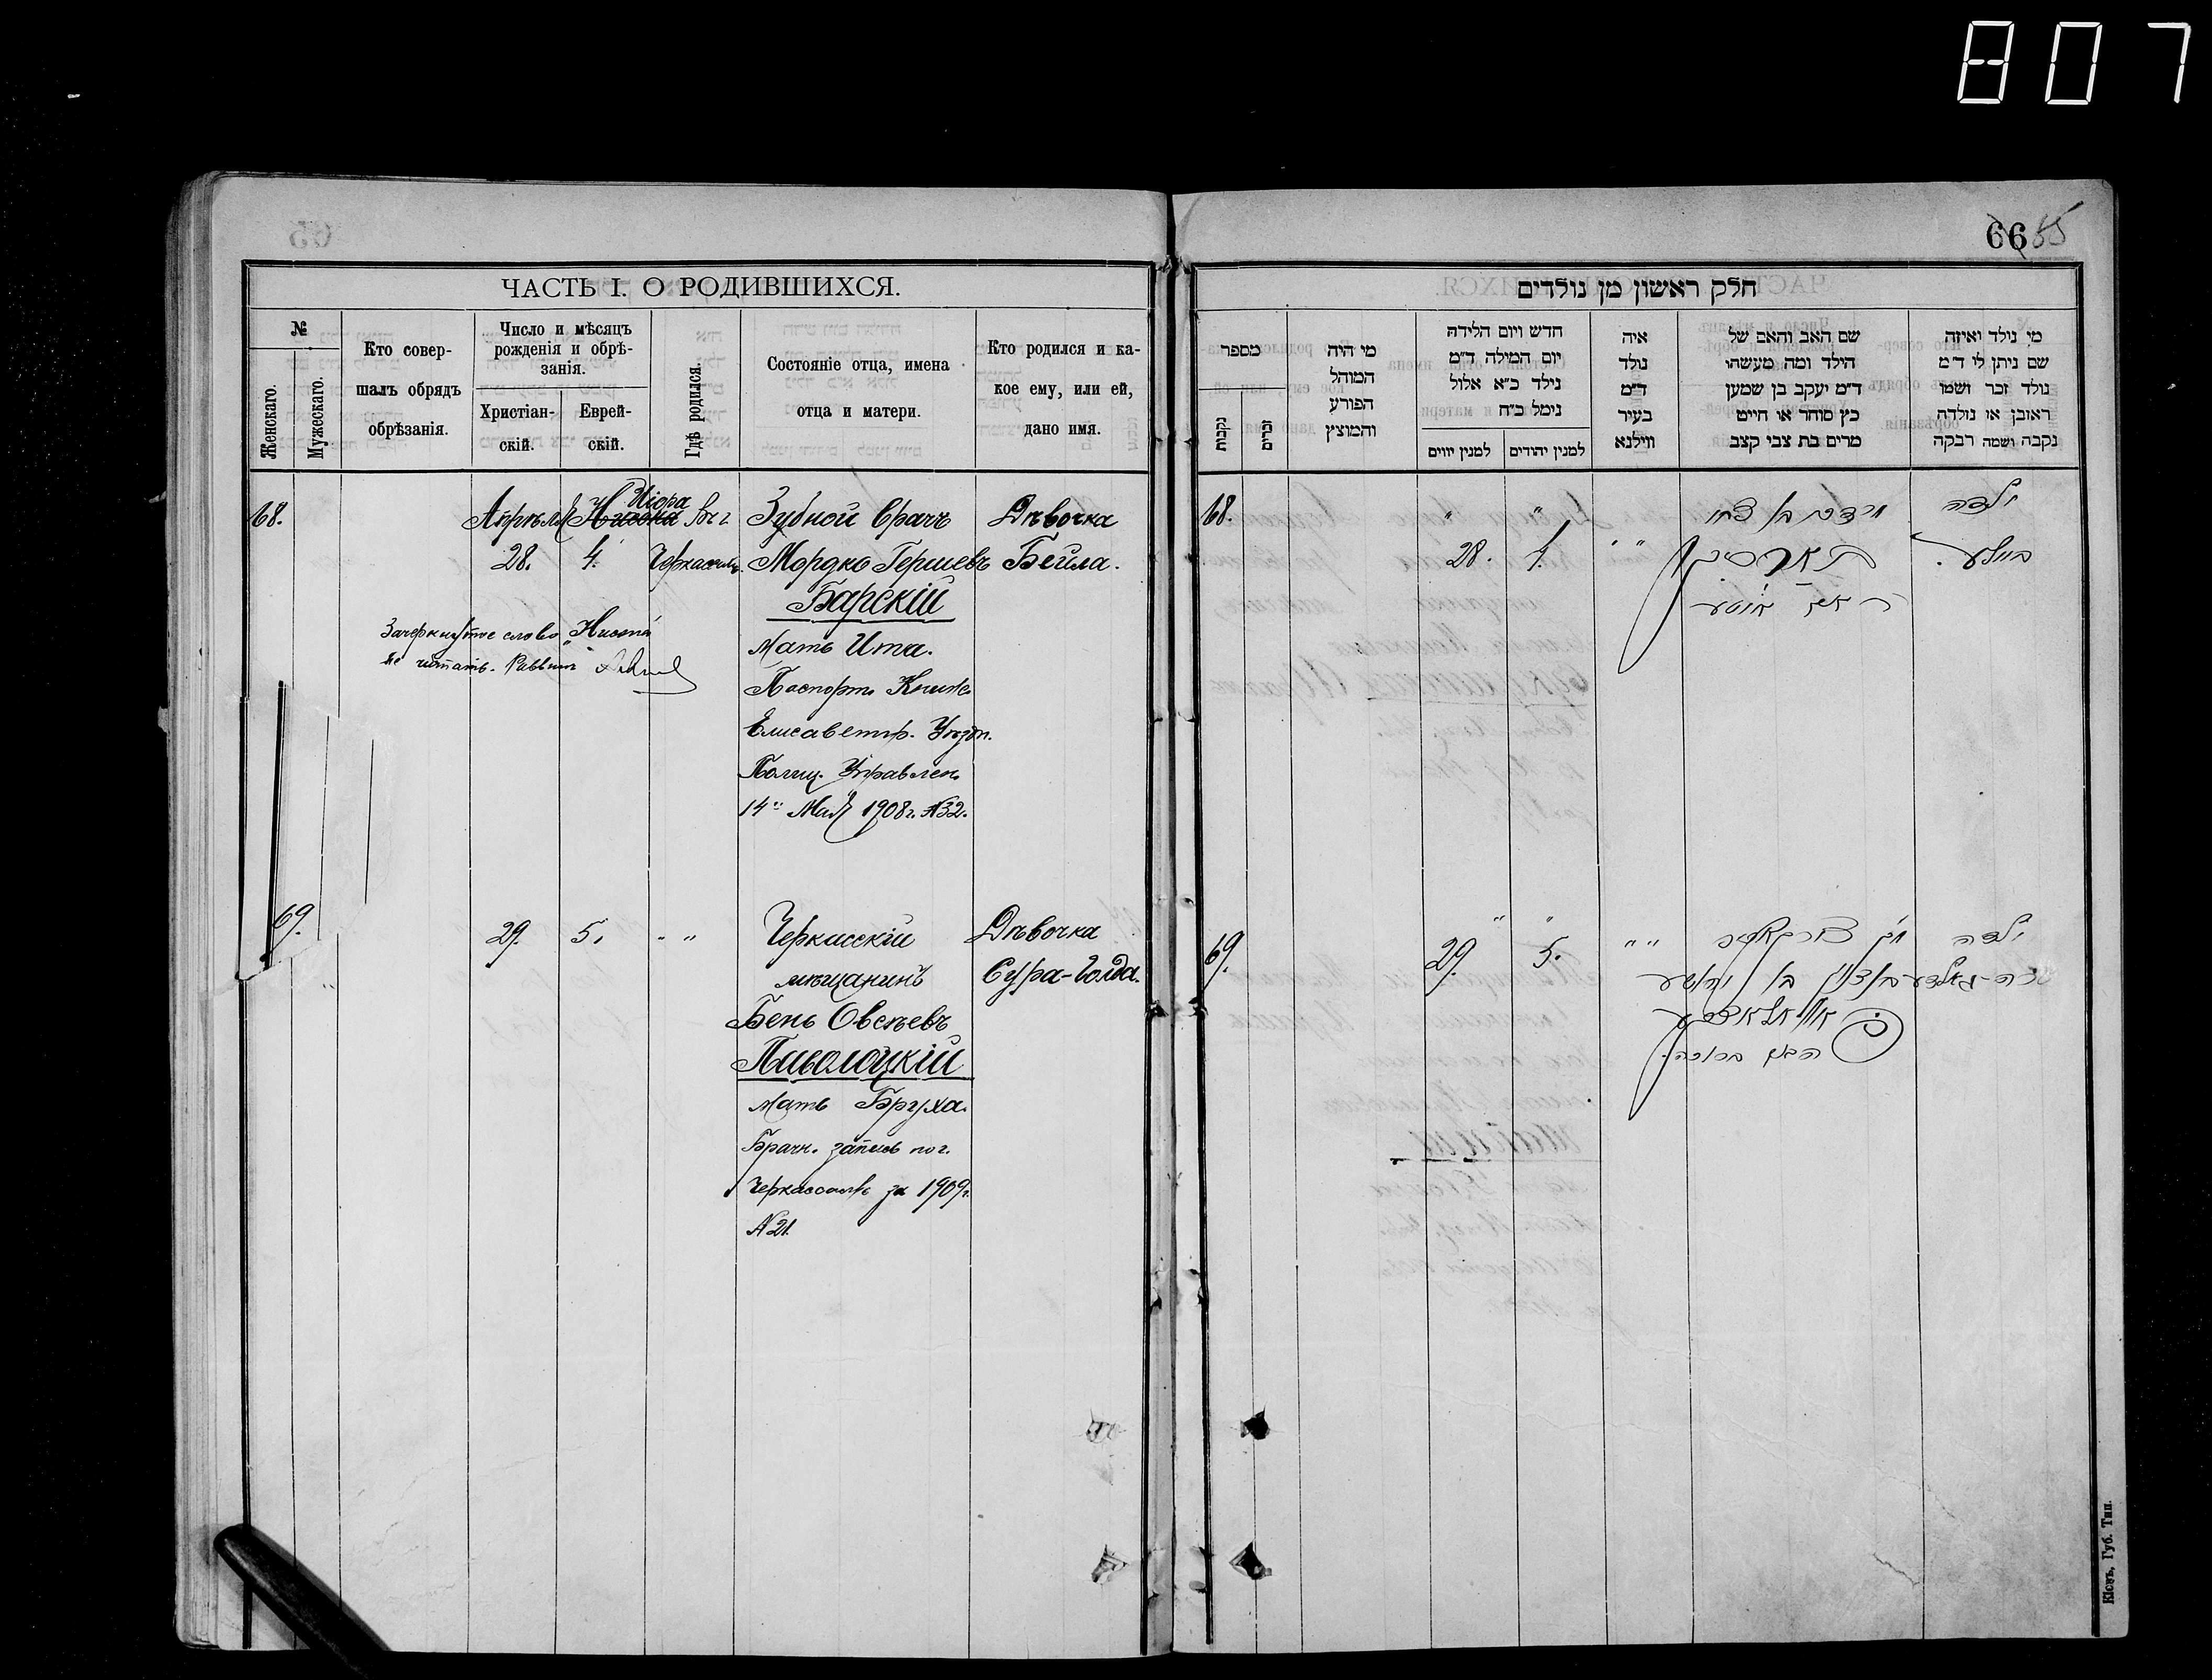 807
ЧАСТЬ I. О РОДИВШИХСЯ.
№
Женскаго.
Мужескаго.
Кто совер-
шалъ обрядъ
обрѣзанія.
Число и мѣсяцъ
рожденія и обрѣ-
занія.
Христіан-
скій.
Еврей-
скій.
Гдѣ родился.
Состояніе отца, имена
отца и матери.
Кто родился и ка-
кое ему, или ей,
дано имя.
68.
Апрѣля
28.
Іiора
4.
въ г.
Черкассахъ.
Зубной врачъ
Мордко Гершевъ
Барскій
Мать Ита.
Паспорт. Книж.
Елисаветгр. Уѣздн.
Полиц. Управлен.
14 Мая 1908 г. №32.
Дѣвочка
Бейла.
Зачеркнутое слово
не читать. Раввинъ
69.
29.
5.
" "
Черкасскій
мѣщанинъ
Бень Овсѣевъ
Паволоцкій
Мать Бруха.
Брачн. запись по г.
Черкассамъ за 1909 г.
№ 21.
Дѣвочка
Сура-Голда.
66 65
חלק ראשון מן נולדים
מספר
נקבות
זכרים
מי היה
המוהל
הפורע
והמוצץ
חדש ויום הלידה
יום המילה ד״מ
נילד כ״א אלול
נימל כ״ח
למנין יווים
למנין יהודים
איה
נולד
ד״מ
בעיר
ווילנא
שם האב והאם של
הילד ומה מעשהו
ד״מ יעקב בן שמען
כץ סוחר או חייט
מרים בת צבי קצב
מי נולד ואיזה
שם ניתן לי ד״מ
נולד זכר ושמו
ראובן או נולדה
נקבה ושמה רבקה
68.
" "
28. 4.
" "
ילדה
ביילע.
69.
" "
29. 5.
" "
ילדה
שרה-גאלדע
האם ברוכה.
Кіевъ, Губ. Тип.